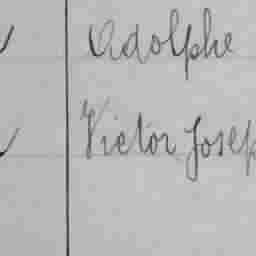 Adolphe
Victor Josep